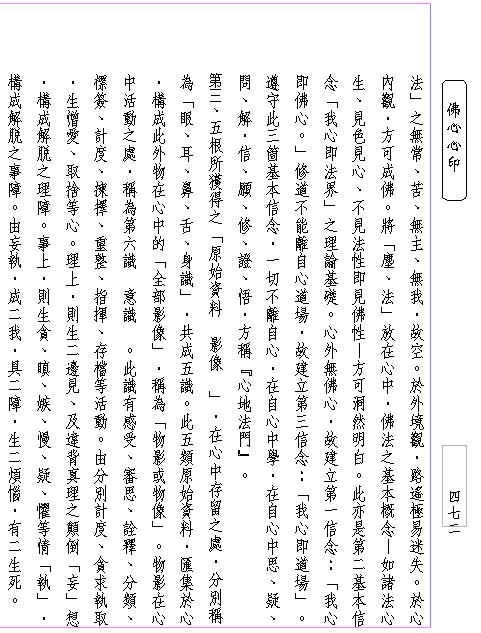 佛心心印
法」之無常、苦、無主、無我，故空。於外境觀，路遙極易迷失。於心
內觀，方可成佛。將「塵、法」放在心中，佛法之基本概念—如諸法心
生、見色見心、不見法性即見佛性—方可洞然明白。此亦是第二基本信
念「我心即法界」之理論基礎。心外無佛心，故建立第一信念：「我心
即佛心。」修道不能離自心道場，故建立第三信念：「我心即道場」。
遵守此三箇基本信念，一切不離自心，在自心中學，在自心中思、疑、
問、解，信、願、修、證、悟，方稱『心地法門』。
第二、五根所獲得之「原始資料　影像　」，在心中存留之處，分別稱
為「眼、耳、鼻、舌、身識」，共成五識。此五類原始資料，匯集於心
，構成此外物在心中的「全部影像」，稱為「物影或物像」。物影在心
中活動之處，稱為第六識　意識　。此識有感受、審思、詮釋、分類、
標簽、計度、揀擇、重整、指揮、存檔等活動。由分別計度、貪求執取
，生憎愛、取捨等心。理上，則生二邊見、及違背真理之顛倒「妄」想
，構成解脫之理障。事上，則生貪、瞋、嫉、慢、疑、懼等情「執」，
構成解脫之事障。由妄執，成二我，具二障，生二煩惱，有二生死。
四七二